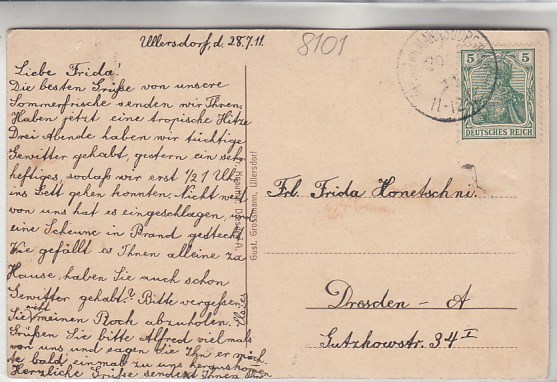 Ullersdorf, d. 28.7.11.
8101
Liebe Frida!
Die besten Grüße von unsere
Sommerfrische senden wir Ihnen.
Haben jetzt eine tropische Hitze
Drei Abende haben wir tüchtige
Gewitter gehabt, gestern ein sehr
heftiges, sodaß wir erst 1/21 Uhr
ins Bett gehen konnten. Nicht weit
von uns hat es eingeschlagen, und
eine Scheune in Brand gesteckt.
Wie gefällt es Ihnen alleine zu
Hause, haben Sie auch schon
Gewitter gehabt? Bitte vergessen
Sie nicht meinen Rock abzuholen.
Grüßen Sie bitte Alfred vielmals
von uns und sagen Sie Ihn er möch-
te bald einmal zu uns herauskommen
Herzliche Grüße sendet Ihnen
Gust. Grossmann, Ullersdorf
5 5
DEUTSCHES REICH
11-12
Frl. Frida Honetschni.
Dresden - A
Gutzkowstr. 34 I